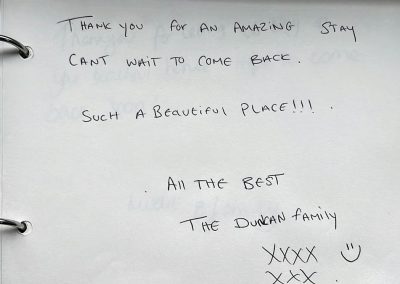 THANK YOU FOR AN AMAZING STAY
CANT WAIT TO COME BACK.
SUCH A BEAUTIFUL PLACE!!! .
. All THE BEST
THE DUNCAN family
XXXX
XXX .